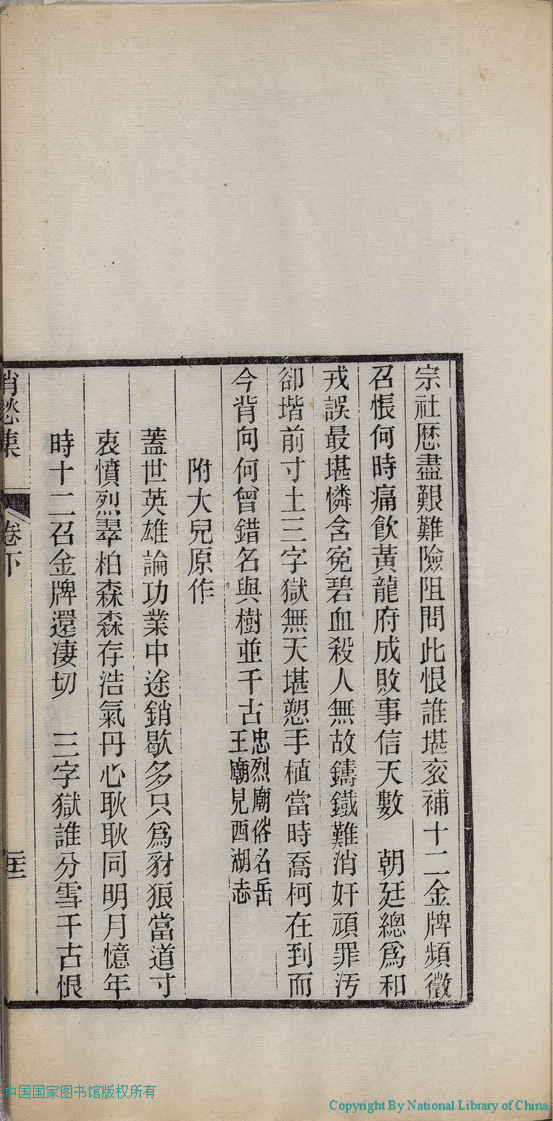 宗社歴盡艱難險阻問此恨誰堪㐮補十二金牌頻徵
召悵何時痛飲黃龍府成敗事信天數　朝廷總爲和
戎誤最堪憐含冤碧血殺人無故鑄鐵難消奸頑罪汚
卻堦前寸土三字獄無天堪愬手植當時喬柯在到而
今背向何曾錯名與樹並千古忠烈廟俗名岳
王廟見西湖志
附大兒原作
蓋世英雄論功業中途銷歇多只爲豺狼當道寸
衷憤烈翠柏森森存浩氣丹心耿耿同明月憶年
時十二召金牌還凄切　三字獄誰分雪千古恨
消愁集
卷下
中国国家图书馆版权所有
Copyright By National Library of China